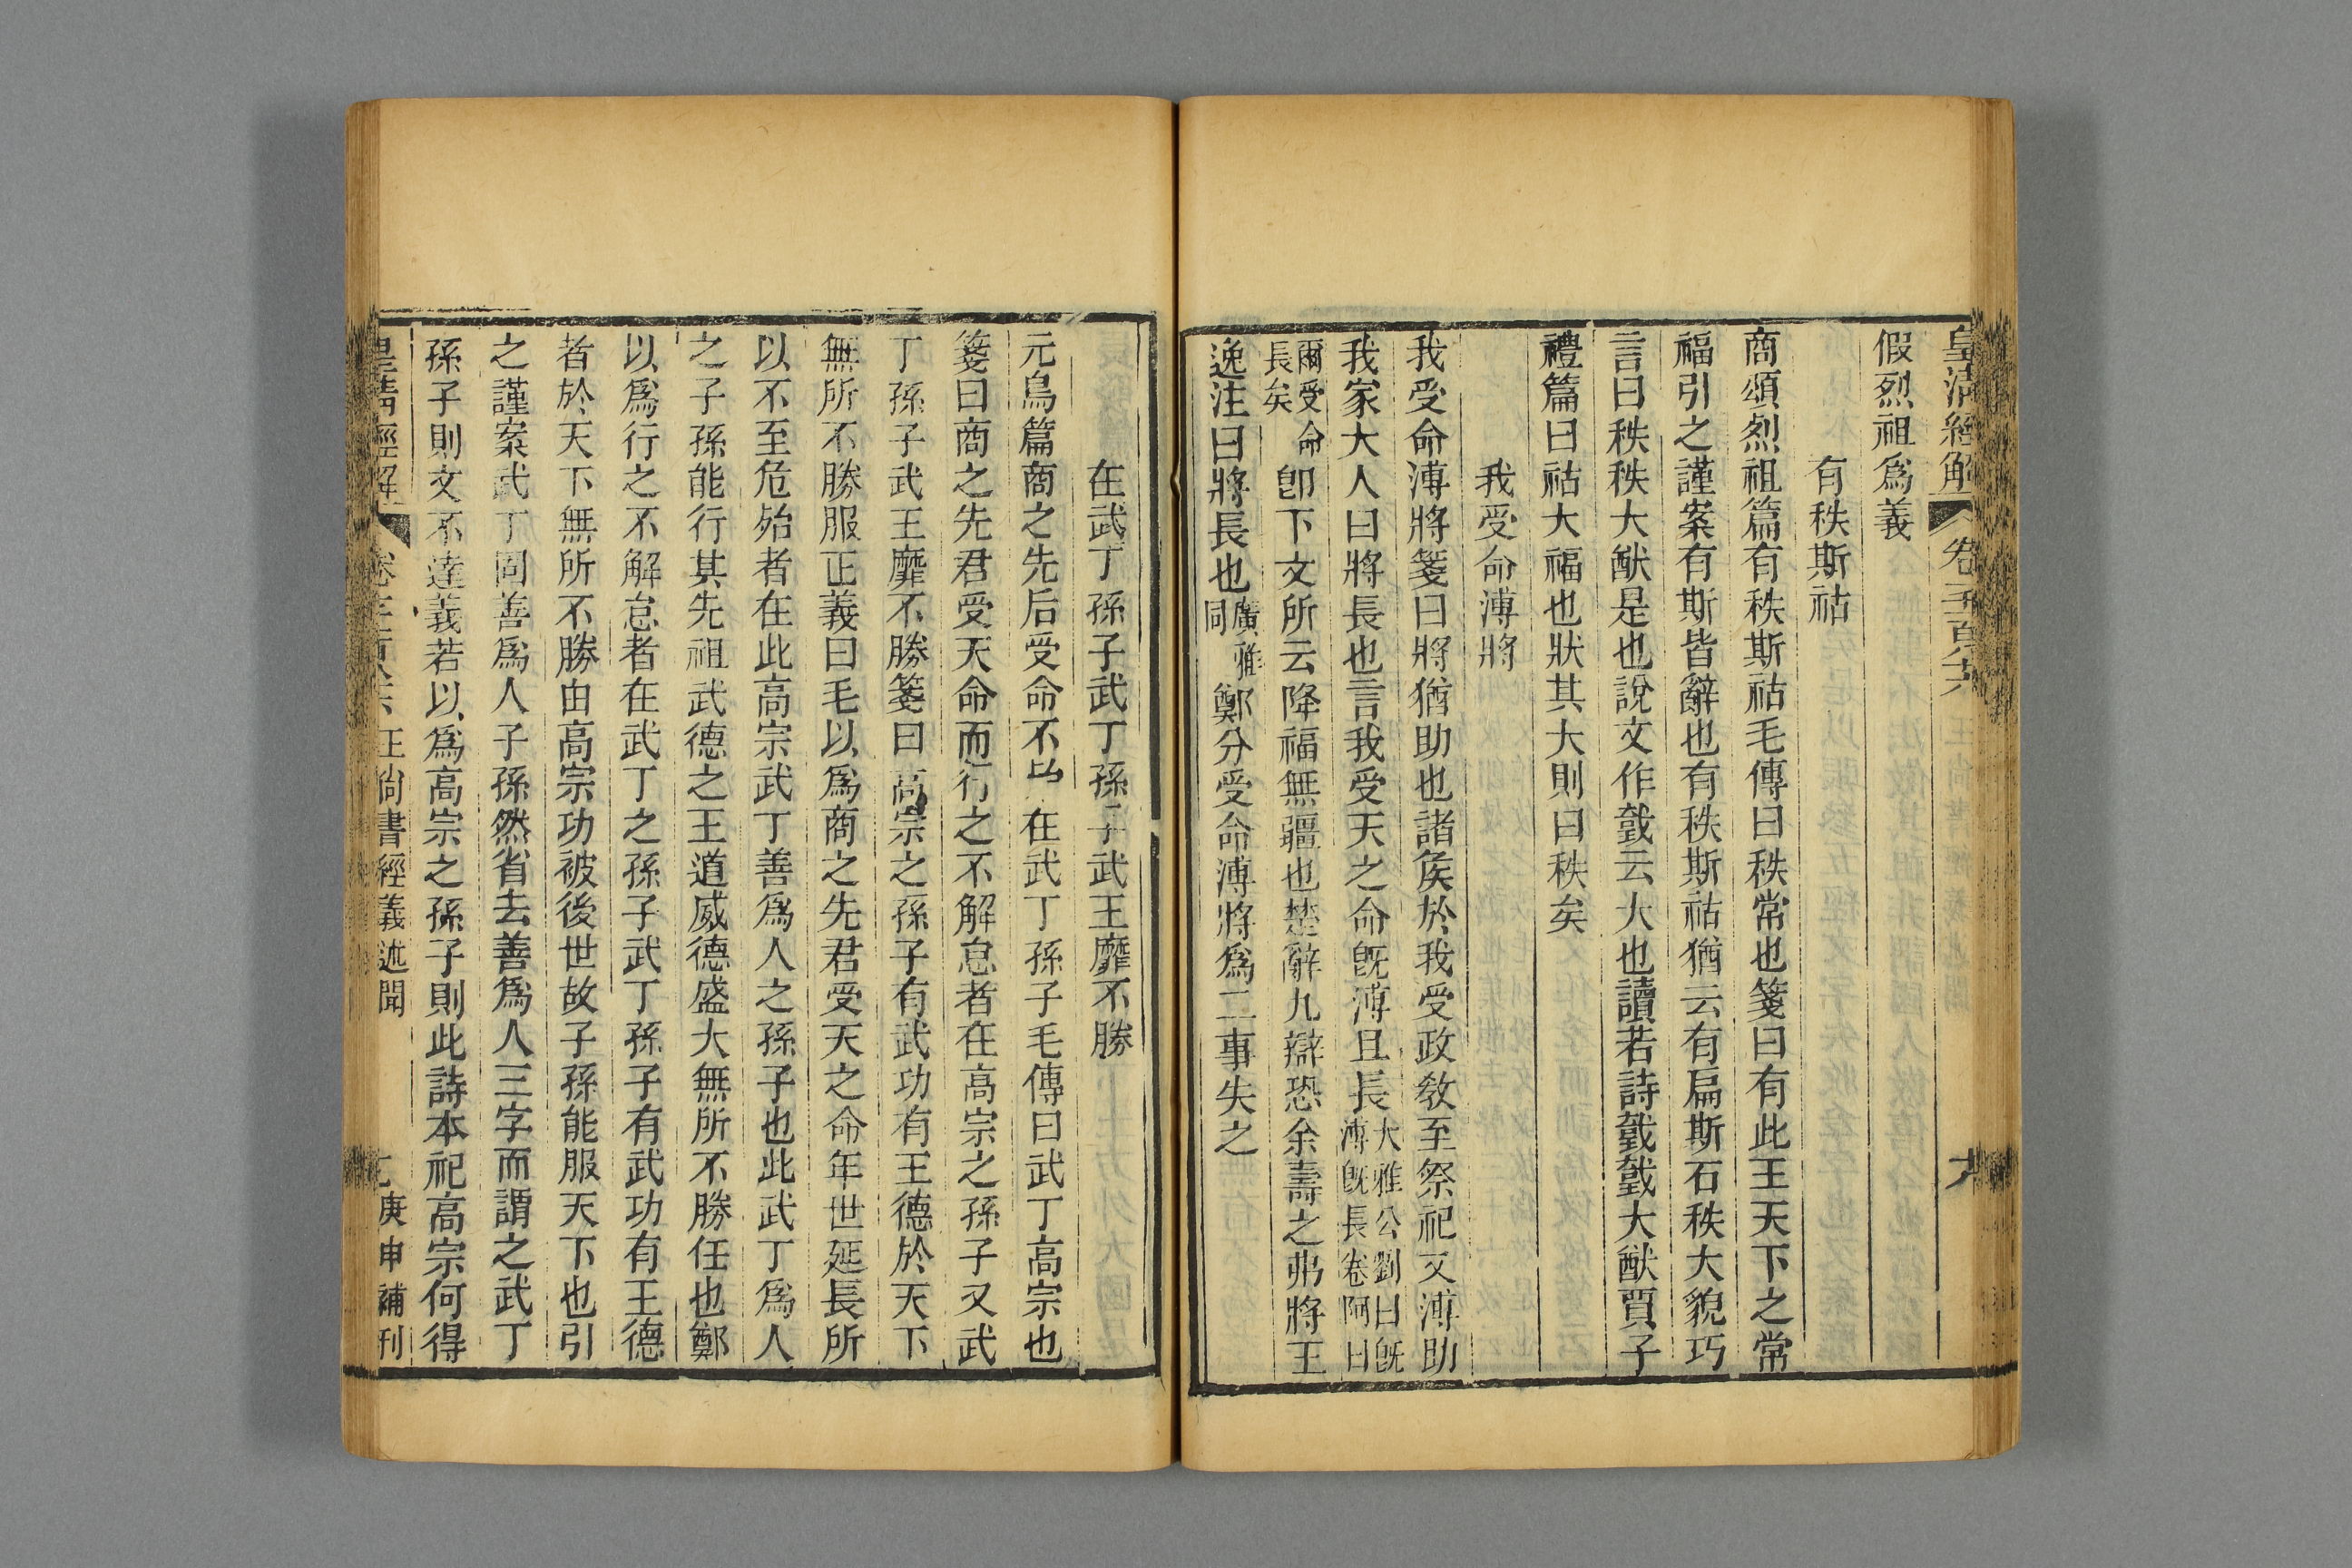 皇清經解 卷千百八 九
假烈祖爲義
有秩斯祜
商頌烈祖篇有秩斯祜毛傳曰秩常也箋曰有此王天下之常
福引之謹案有斯皆辭也有秩斯祜猶云有扁斯石秩大貌巧
言曰秩秩大猷是也說文作䟫云大也讀若詩䟫䟫大猷賈子
禮篇曰祜大福也狀其大則曰秩矣
我受命溥將
我受命溥將箋曰將猶助也諸矦於我受政敎至祭祀又溥助
我家大人曰將長也言我受天之命旣溥且長大雅公劉曰旣溥旣長卷阿曰
爾受命長矣卽下文所云降福無疆也楚辭九辯恐余壽之弗將王
逸注曰將長也廣雅同鄭分受命溥將爲二事失之
在武丁孫子武丁孫子武王靡不勝
元鳥篇商之先后受命不 在武丁孫子毛傳曰武丁高宗也
箋曰商之先君受天命而行之不解怠者在高宗之孫子又武
丁孫子武王靡不勝箋曰高宗之孫子有武功有王德於天下
無所不勝服正義曰毛以爲商之先君受天之命年世延長所
以不至危殆者在此高宗武丁善爲人之孫子也此武丁爲人
之子孫能行其先祖武德之王道威德盛大無所不勝任也鄭
以爲行之不解怠者在武丁之孫子武丁孫子有武功有王德
者於天下無所不勝由高宗功被後世故子孫能服天下也引
之謹案武丁固善爲人子孫然省去善爲人三字而謂之武丁
孫子則文不達義若以爲高宗之孫子則此詩本祀高宗何得
皇清經解 王尚書經義述聞 庚申補刊